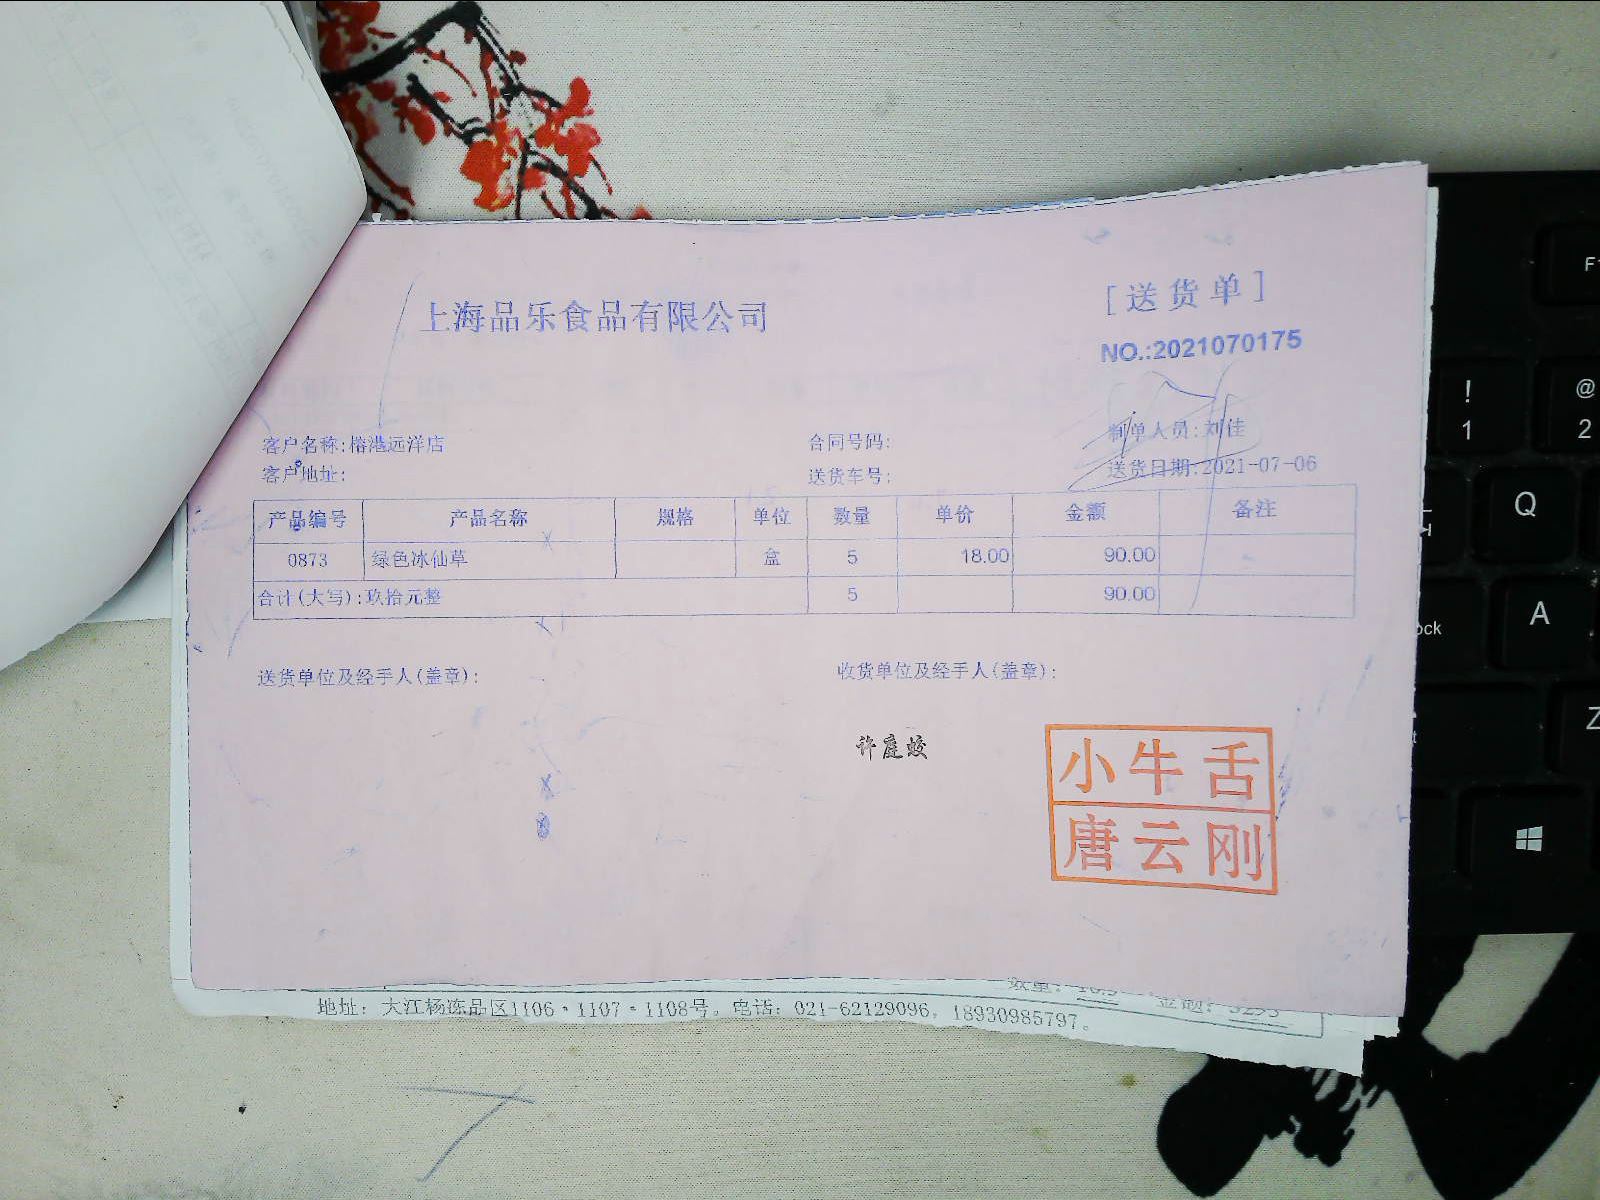 上海品乐食品有限公司
[送货单]
NO.:2021070175
客户名称:榕港远洋店
合同号码:
制单人员:刘佳
客户地址:
送货车号:
送货日期:2021-07-06
产品编号 产品名称 规格 单位 数量 单价 金额 备注
0873 绿色冰仙草 盒 5 18.00 90.00
合计(大写):玖拾元整 5 90.00
送货单位及经手人(盖章):
收货单位及经手人(盖章):
许庭蛟
小牛舌
唐云刚
数量:
金额: 3295
地址: 大江杨冻品区1106·1107·1108号。电话: 021-62129096, 18930985797。
F1
!
1
@
2
Q
A
ock
Z